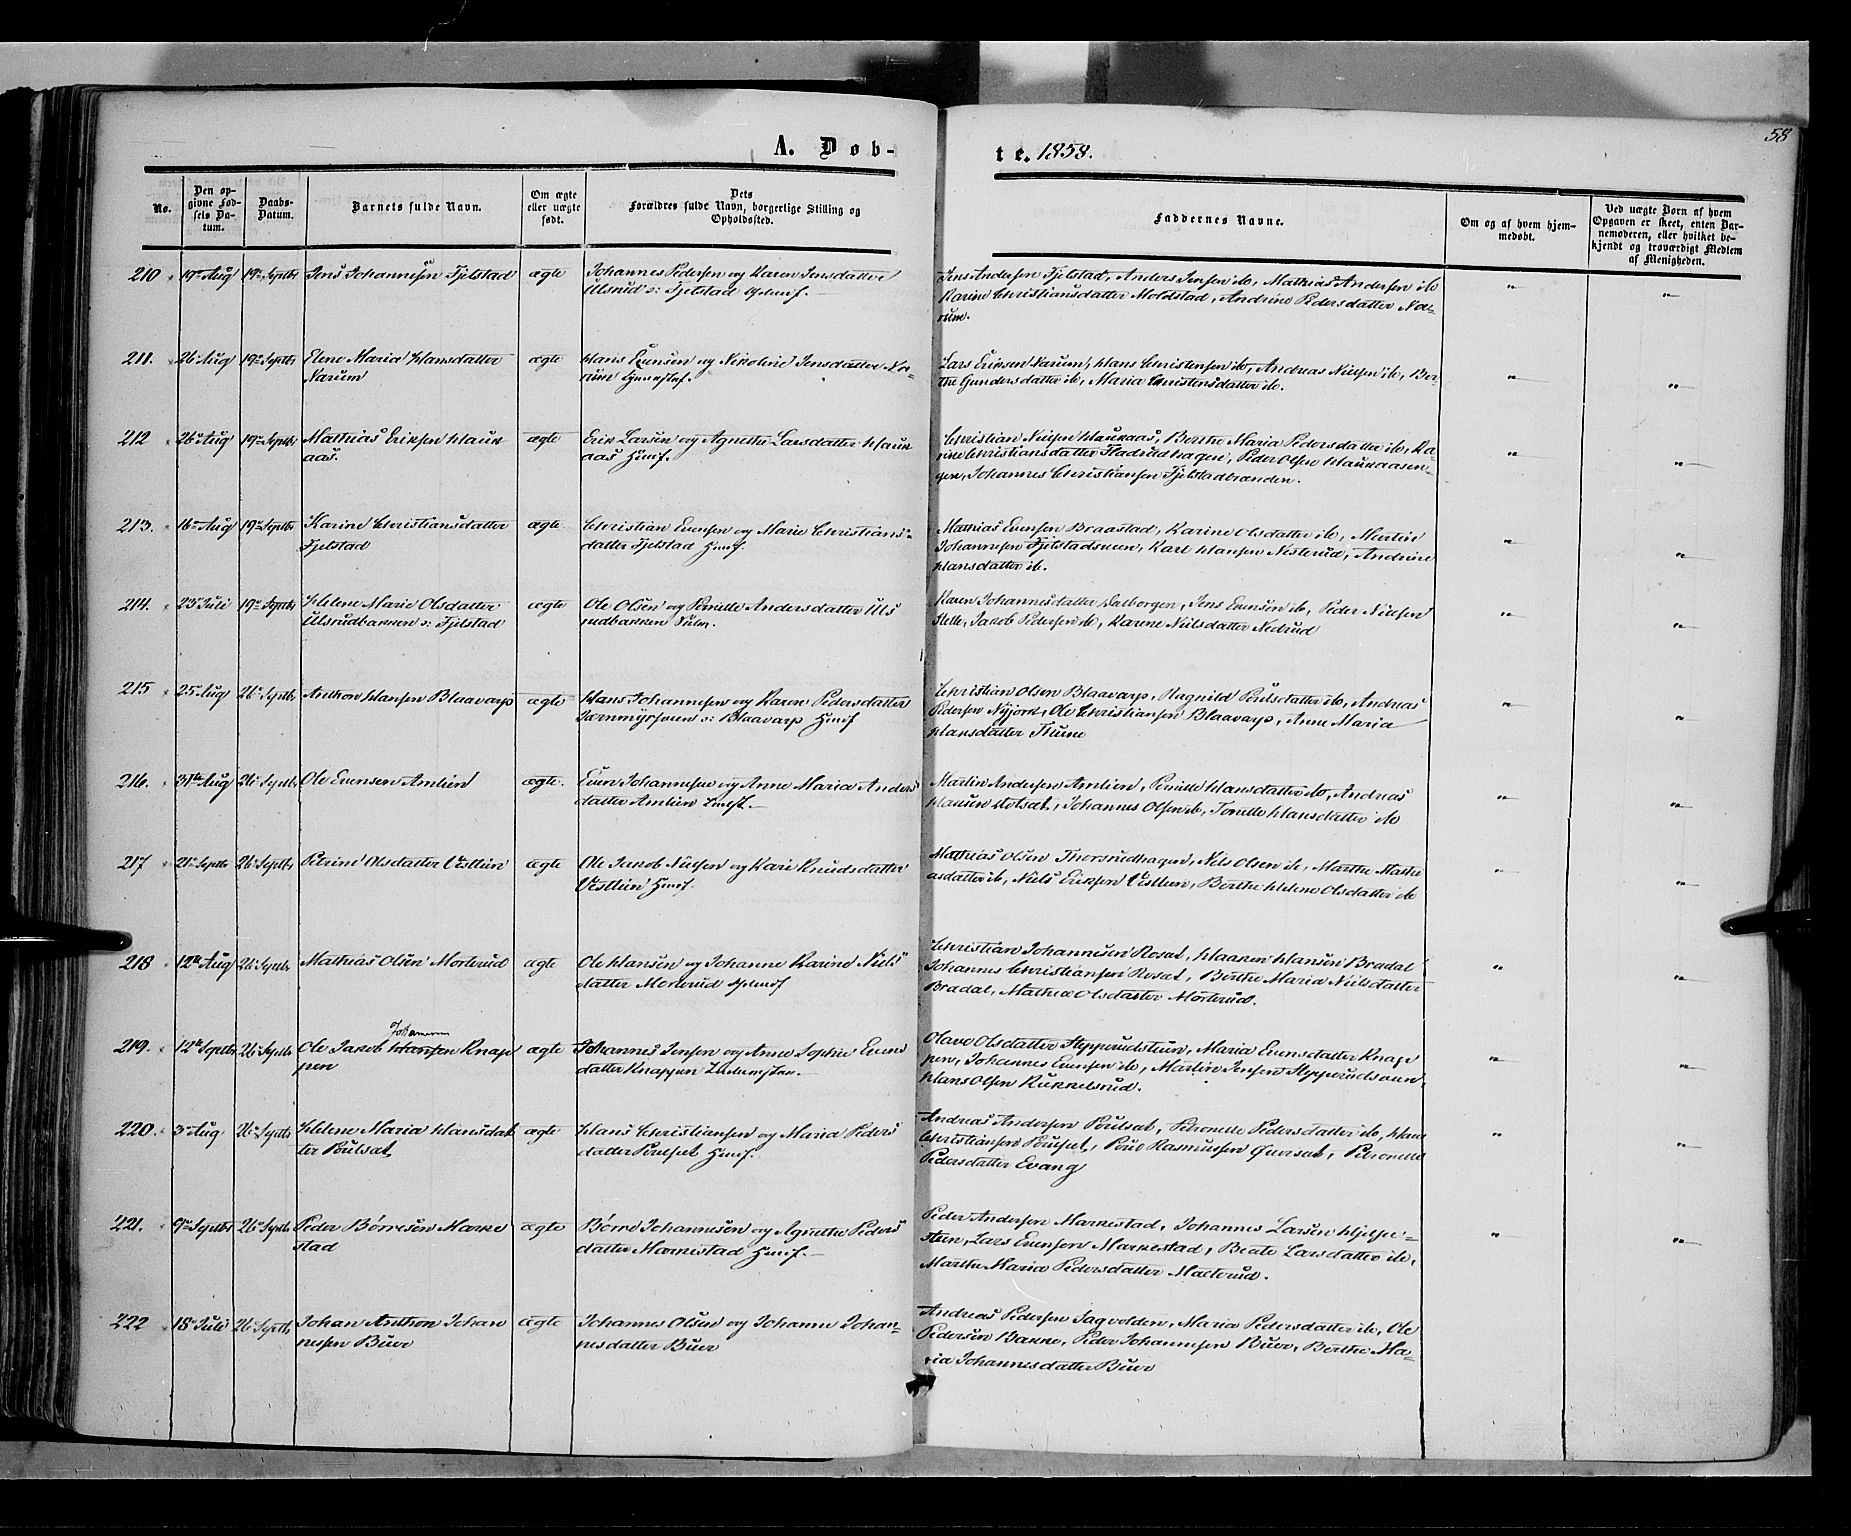 58
A. Døb-
te. 1858.
No.
Den op-
givne Fød-
sels Da-
tum.
Daabs-
Datum.
Barnets fulde Navn.
Om ægte
eller uægte
født.
Dets
Forældres fulde Navn, borgerlige Stilling og
Opholdssted.
Faddernes Navne.
Om og af hvem hjem-
medøbt.
Ved uægte Børn af hvem
Opgaven er skeet, enten Bar-
nemoderen, eller hvilket be-
kjendt og troværdigt Medlem
af Menigheden.
210 19de Aug 19de Septbr Jens Johannesen Fjelstad ægte Johannes Pedersen og Karen Jensdatter
Ulsrud o: Fjelstad
Jens Andersen Fjelstad, Anders Jensen ib, Mathias Andersen ib
Karine Christiansdatter Moldstad, Andrine Pedersdatter Na-
rum.
211. 26 Aug 19de Septbr Elene Maria Hansdatter
Narum
ægte Hans Evensen og Nikoline Jensdatter Na-
rum
Lars Eriksen Narum, Hans Christensen ib, Andreas Nielsen ib, Ber-
the Gundersdatter ib, Maria Christensdatter ib.
212 26 Aug 19de Septbr Mathias Eriksen Hauk
aas.
ægte Erik Larsen og Agnethe Larsdatter Hauk
aas Huusf.
Christian Nielsen Haukaas, Berthe Maria Pedersdatter ib, Ka-
rine Christiansdatter Fladrudhagen, Peder Olsen Haukaasen-
gen, Johannes Christiansen Fjelstadbraenden.
213. 16de Aug 19de Septbr Karine Christiansdatter
Fjelstad
ægte Christian Evensen og Marie Christians-
datter Fjelstad Huusf.
Mathias Evensen Braastad, Karine Olsdatter ib, Martin
Johannesen Fjelstadsveen, Karl Hansen Nesterud, Andrine
Hansdatter ib.
214. 23de Juli 19de Septbr Helene Marie Olsdatter
Ulsrudbakken o: Fjelstad
ægte Ole Olsen og Pernille Andersdatter Uls
rudbakken
Karen Johannesdatter Dalborgen, Jens Evensen ib, Peder Nielsen
Helle, Jakob Pedersen ib, Karene Nielsdatter Nedrud
215 25de Aug 26de Septbr Anthon Hansen Blaavarp ægte Hans Johannesen og Karen Pedersdatter
o: Blaavarp Huusf
Christian Olsen Blaavarp, Ragnild Poulsdatter ib, Andreas
Pedersen Nyjord, Ole Christiansen Blaavarp, Anne Maria
Hansdatter Thune
216. 31te Aug 26de Septbr Ole Evensen Amlien ægte. Even Johannesen og Anne Maria Anders
datter Amlien
Martin Andersen Amlien, Pernille Hansdatter ib, Andreas
Hansen Johannes Olsen ib, Tonette Hansdatter ib
217 21de Septbr 26de Septbr Perine Olsdatter Vestlien ægte Ole Jakob Nielsen og Kari Knudsdatter
Vestlien Huusf.
Mathias Olsen Thorsrudhagen, Nils Olsen ib, Marthe Mathi
asdatter ib, Niels Eriksen Vestlien, Berthe Helene Olsdatter ib
218 12te Aug 26de Septbr Mathias Olsen Morterud ægte Ole Hansen og Johanne Karine Niels
datter Morterud
Christian Johannesen Rosæt, Haaken Hansen Bradal
Johannes Christiansen Rosæt, Berthe Maria Nielsdatter
Bradal, Mathea Olsdatter Morterud.
219. 12te Septbr 26de Septbr Ole Jakob Johannesen Hansen Knap
pen
ægte Johannes Jensen og Anne Sophie Evens
datter Knappen
Olave Olsdatter Maria Evensdatter Knap
pen, Johannes Evensen ib, Martin Jensen
Hans Olsen Kukkelsrud.
220. 3de Aug 26de Septbr Helene Maria Hansdat
ter Poulsæt,
ægte Hans Christiansen og Maria Peders
datter Poulsæt Huusf.
Andreas Andersen Poulsæt, Petronelle Pedersdatter ib, Hans
Christiansen Poulsæt, Poul Rasmussen Petronelle
Pedersdatter Evang
221. 9de Septbr 26de Septbr Peder Børresen Marke
stad
ægte Børre Johannesen og Agnethe Peders
datter Markestad Huusf.
Peder Andersen Markestad, Johannes Larsen Hjelpe-
steen, Lars Evensen Markestad, Beate Larsdatter ib,
Marthe Maria Pedersdatter Malterud.
222 18de Juli 26de Septbr Johan Anthon Johan
nessen Buer
ægte Johannes Olsen og Johanne Johan-
nesdatter Buer
Andreas Pedersen Maria Pedersdatter ib, Ole
Pedersen Bakke, Peder Johannesen Buer, Berthe Ma-
ria Johannesdatter Buer